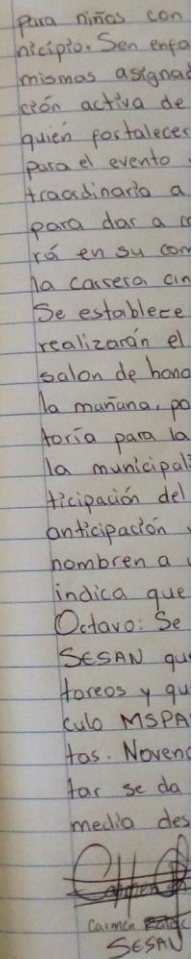 para niñas con
nicipio. Sen enfo
mismas asignad
ción activa de
quién fortalecer
para el evento
traordinaria a
para dar a co
rá en su com
la carrera cin
Se establece
realizarán el
salon de hono
la mañana, po
toría para la
la municipali
ticipación del
anticipación
nombren a
indica que
Octavo: Se
SESAN qu
toreos y qu
culo MSPA
tas. Noveno
tar se da
media des
Carmen
SESAN